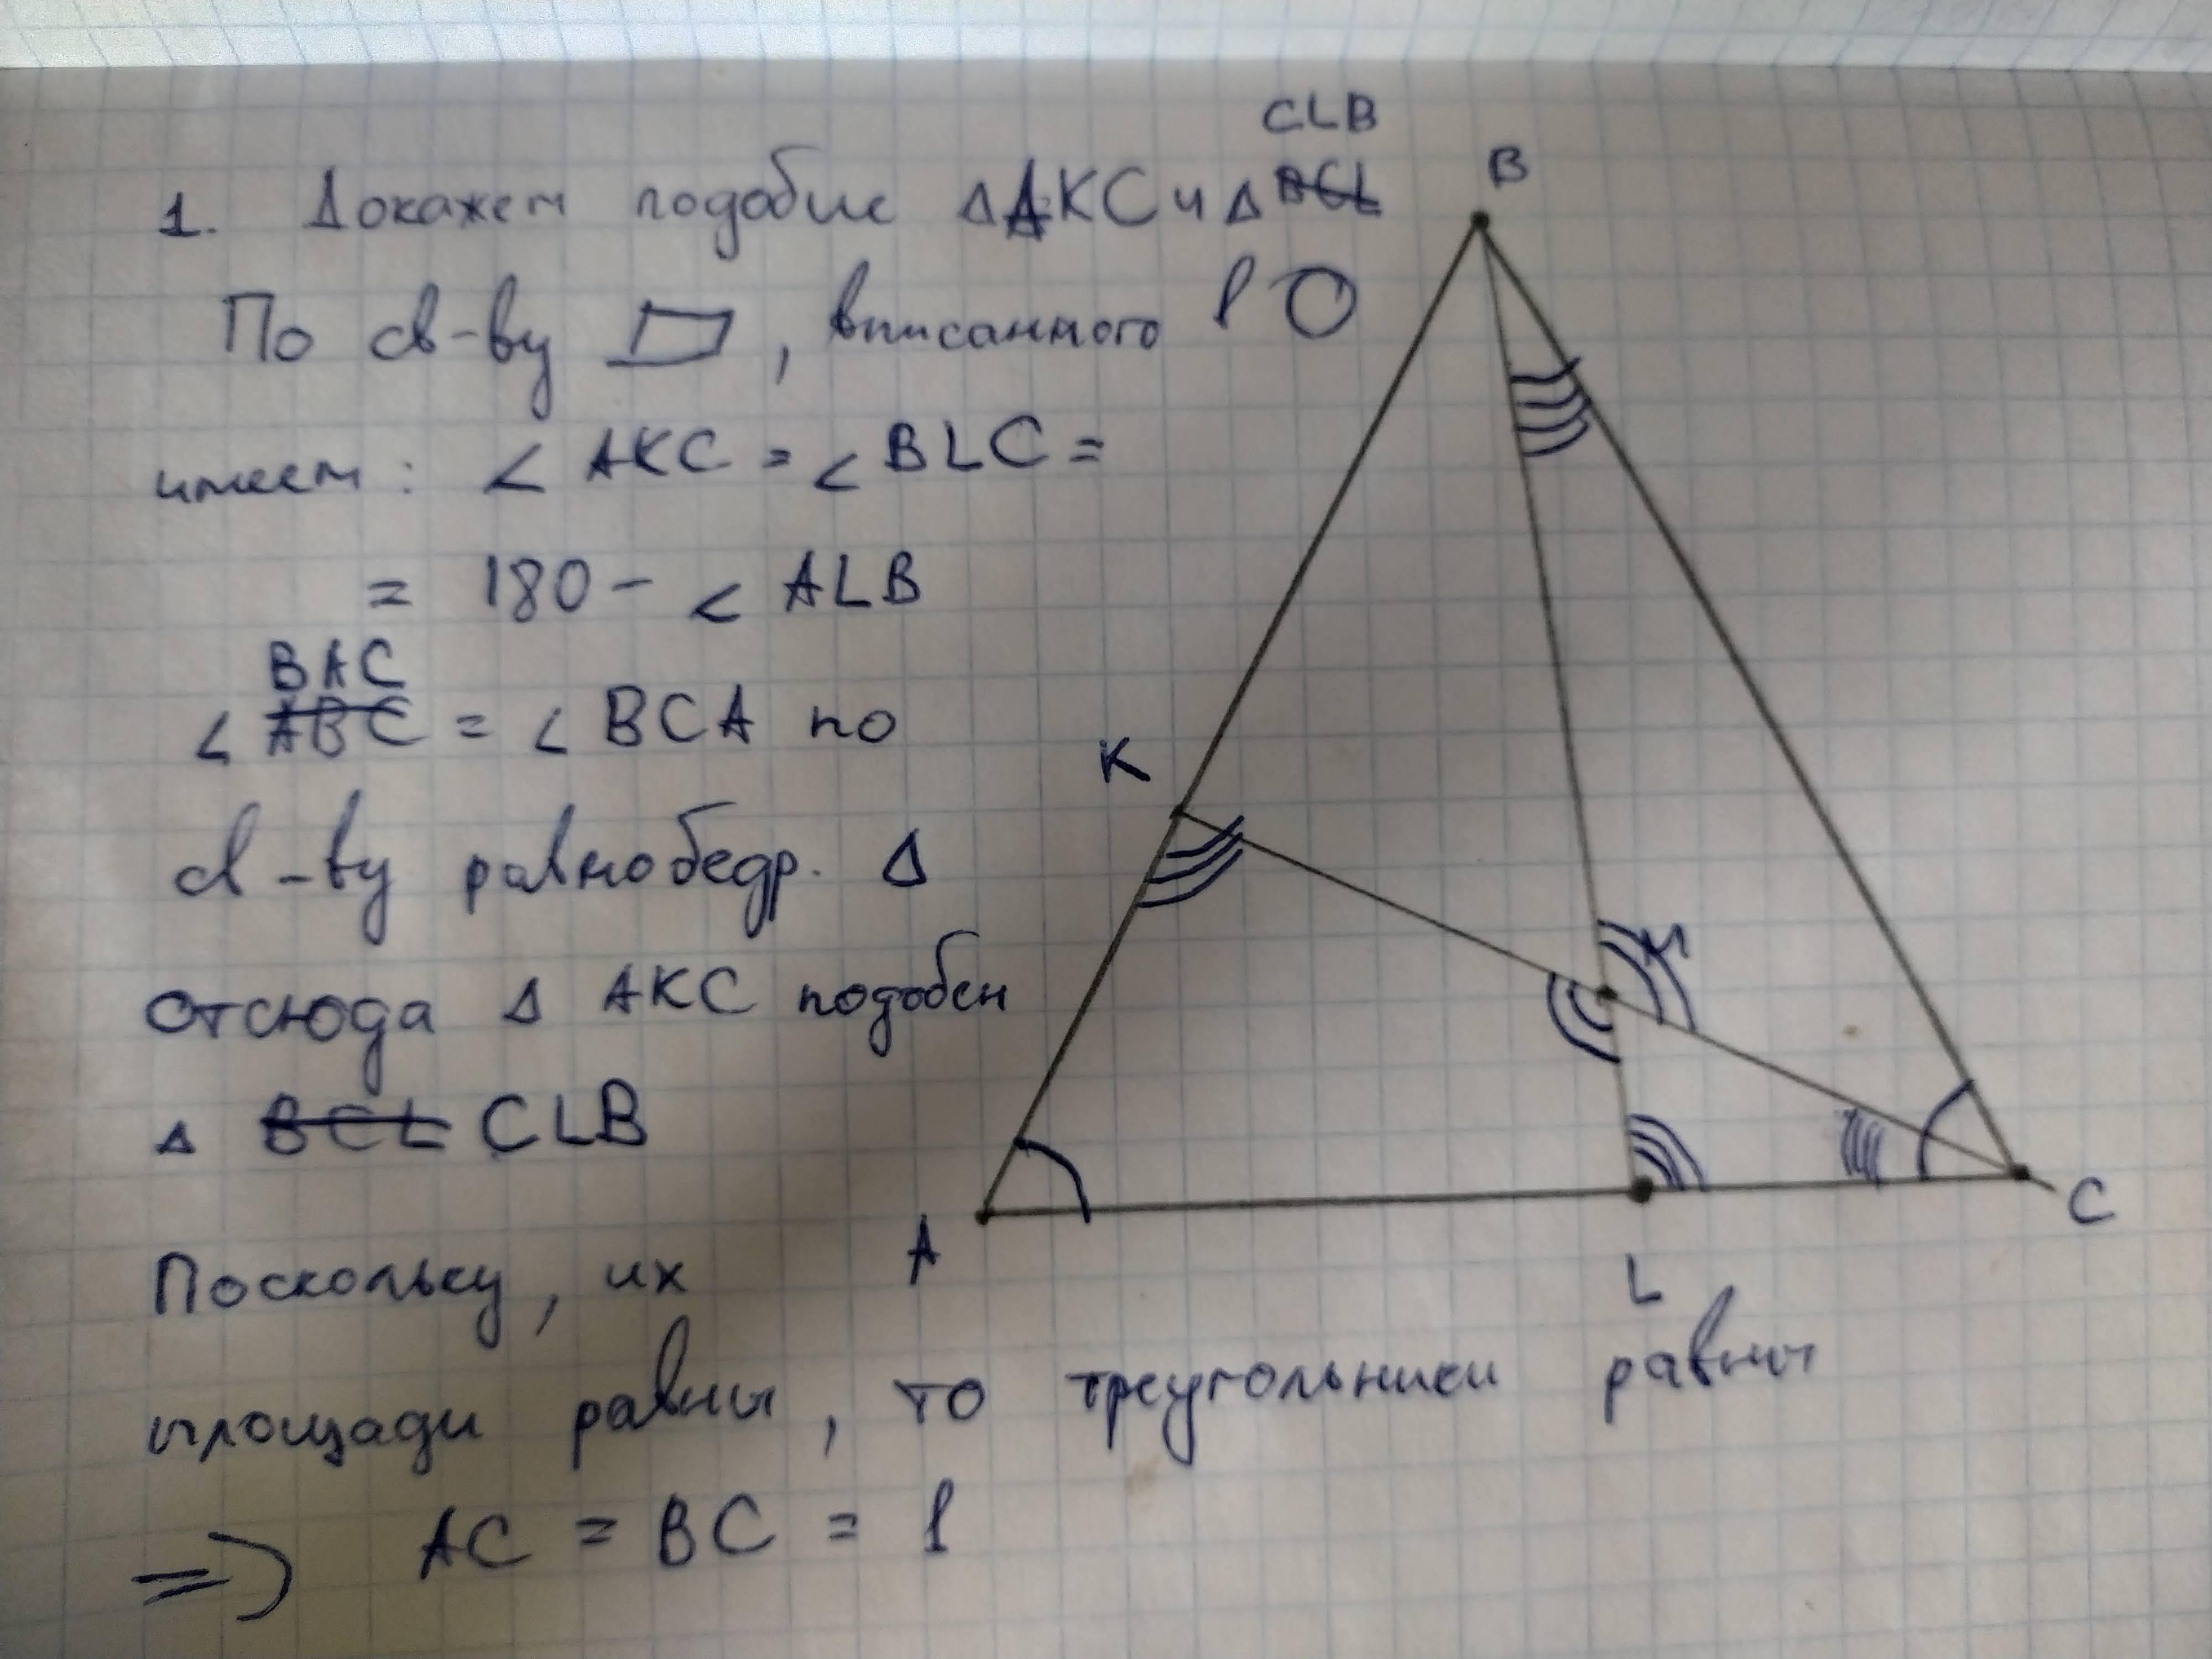 CLB
1. Докажем подобие Δ AKC и Δ BCL
По св-ву ▱, вписанного в ○
имеем: ∠ AKC = ∠ BLC =
= 180 - ∠ ALB
BAC
∠ ABC = ∠ BCA по
св-ву равнобедр. Δ
отсюда Δ AKC подобен
Δ BCL CLB
Поскольку, их
площади равны, то треугольники равны
=> AC = BC = 1
B
K
M
A
L
C